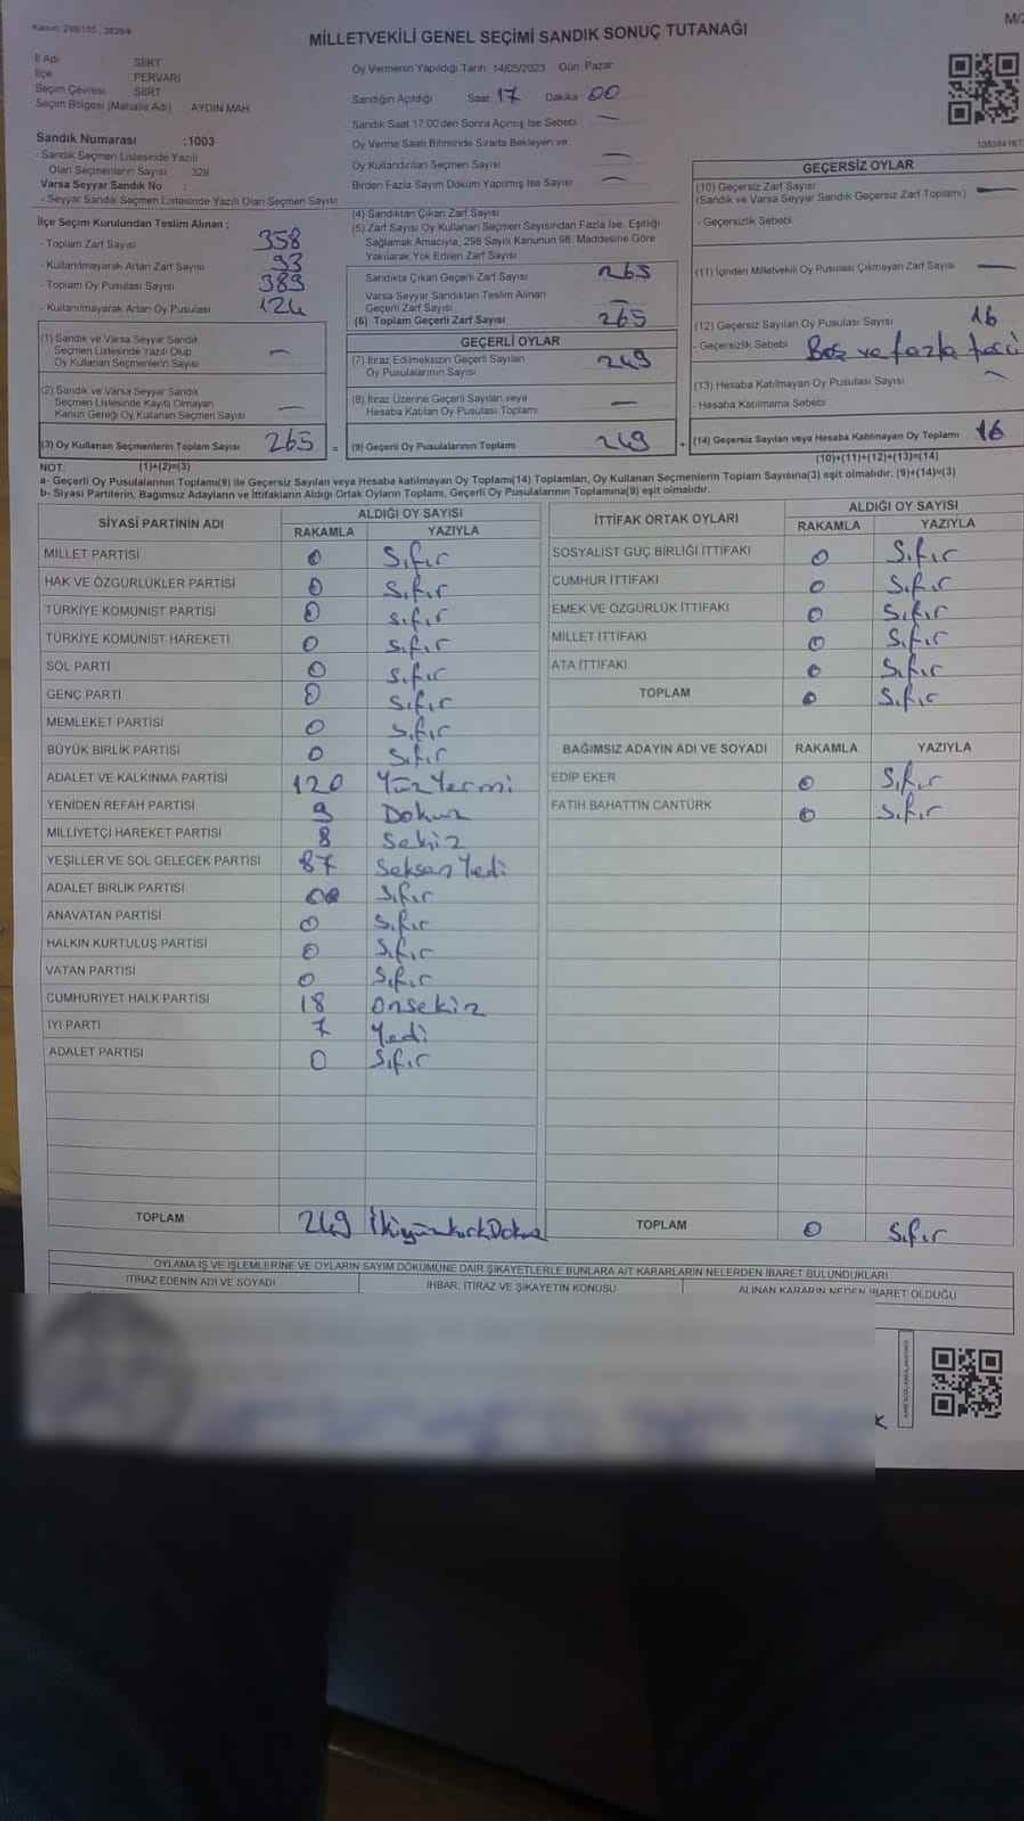 MİLLETVEKİLİ GENEL SEÇİMİ SANDIK SONUÇ TUTANAĞI
İl Adı SİİRT
İlçe PERVARİ
Seçim Çevresi SİİRT
Seçim Bölgesi (Mahalle Adı) AYDIN MAH.
Sandık Numarası :1003
- Sandık Seçmen Listesinde Yazılı
Olan Seçmenlerin Sayısı 329
Varsa Seyyar Sandık No :
- Seyyar Sandık Seçmen Listesinde Yazılı Olan Seçmen Sayısı
Oy Vermenin Yapıldığı Tarih: 14/05/2023 Gün: Pazar
Sandığın Açıldığı Saat 17 Dakika 00
Sandık Saat 17:00'den Sonra Açılmış İse Sebebi —
Oy Verme Saati Bitiminde Sırada Bekleyen ve
Oy Kullandırılan Seçmen Sayısı —
Birden Fazla Sayım Döküm Yapılmış İse Sayısı —
İlçe Seçim Kurulundan Teslim Alınan ;
- Toplam Zarf Sayısı 358
- Kullanılmayarak Artan Zarf Sayısı 93
- Toplam Oy Pusulası Sayısı 389
- Kullanılmayarak Artan Oy Pusulası 124
(1) Sandık ve Varsa Seyyar Sandık
Seçmen Listesinde Yazılı Olup
Oy Kullanan Seçmenlerin Sayısı —
(2) Sandık ve Varsa Seyyar Sandık
Seçmen Listesinde Kayıtlı Olmayan
Kanun Gereği Oy Kullanan Seçmen Sayısı —
(3) Oy Kullanan Seçmenlerin Toplam Sayısı 265 =
(1)+(2)=(3)
(4) Sandıktan Çıkan Zarf Sayısı
(5) Zarf Sayısı Oy Kullanan Seçmen Sayısından Fazla İse, Eşitliği
Sağlamak Amacıyla, 298 Sayılı Kanunun 98. Maddesine Göre
Yakılarak Yok Edilen Zarf Sayısı
Sandıkta Çıkan Geçerli Zarf Sayısı 265
Varsa Seyyar Sandıktan Teslim Alınan
Geçerli Zarf Sayısı —
(6) Toplam Geçerli Zarf Sayısı 265
GEÇERLİ OYLAR
(7) İtiraz Edilmeksizin Geçerli Sayılan
Oy Pusulalarının Sayısı 249
(8) İtiraz Üzerine Geçerli Sayılan veya
Hesaba Katılan Oy Pusulası Toplamı —
(9) Geçerli Oy Pusulalarının Toplamı 249 +
GEÇERSİZ OYLAR
(10) Geçersiz Zarf Sayısı
(Sandık ve Varsa Seyyar Sandık Geçersiz Zarf Toplamı) —
- Geçersizlik Sebebi
(11) İçinden Milletvekili Oy Pusulası Çıkmayan Zarf Sayısı —
(12) Geçersiz Sayılan Oy Pusulası Sayısı 16
- Geçersizlik Sebebi Boş ve fazla
(13) Hesaba Katılmayan Oy Pusulası Sayısı —
- Hesaba Katılmama Sebebi
(14) Geçersiz Sayılan veya Hesaba Katılmayan Oy Toplamı 16
(10)+(11)+(12)+(13)=(14)
NOT:
a- Geçerli Oy Pusulalarının Toplamı(9) ile Geçersiz Sayılan veya Hesaba katılmayan Oy Toplamı(14) Toplamları, Oy Kullanan Seçmenlerin Toplam Sayısına(3) eşit olmalıdır. (9)+(14)=(3)
b- Siyasi Partilerin, Bağımsız Adayların ve İttifakların Aldığı Ortak Oyların Toplamı, Geçerli Oy Pusulalarının Toplamına(9) eşit olmalıdır.
SİYASİ PARTİNİN ADI ALDIĞI OY SAYISI
RAKAMLA YAZIYLA
MİLLET PARTİSİ 0 Sıfır
HAK VE ÖZGÜRLÜKLER PARTİSİ 0 Sıfır
TÜRKİYE KOMÜNİST PARTİSİ 0 Sıfır
TÜRKİYE KOMÜNİST HAREKETİ 0 Sıfır
SOL PARTİ 0 Sıfır
GENÇ PARTİ 0 Sıfır
MEMLEKET PARTİSİ 0 Sıfır
BÜYÜK BİRLİK PARTİSİ 0 Sıfır
ADALET VE KALKINMA PARTİSİ 120 Yüz Yermi
YENİDEN REFAH PARTİSİ 9 Dokuz
MİLLİYETÇİ HAREKET PARTİSİ 8 Sekiz
YEŞİLLER VE SOL GELECEK PARTİSİ 87 Seksen Yedi
ADALET BİRLİK PARTİSİ 00 Sıfır
ANAVATAN PARTİSİ 0 Sıfır
HALKIN KURTULUŞ PARTİSİ 0 Sıfır
VATAN PARTİSİ 0 Sıfır
CUMHURİYET HALK PARTİSİ 18 Onsekiz
İYİ PARTİ 7 Yedi
ADALET PARTİSİ 0 Sıfır
TOPLAM 249 İkiyüzkırkDokuz
İTTİFAK ORTAK OYLARI ALDIĞI OY SAYISI
RAKAMLA YAZIYLA
SOSYALİST GÜÇ BİRLİĞİ İTTİFAKI 0 Sıfır
CUMHUR İTTİFAKI 0 Sıfır
EMEK VE ÖZGÜRLÜK İTTİFAKI 0 Sıfır
MİLLET İTTİFAKI 0 Sıfır
ATA İTTİFAKI 0 Sıfır
TOPLAM 0 Sıfır
BAĞIMSIZ ADAYIN ADI VE SOYADI RAKAMLA YAZIYLA
EDİP EKER 0 Sıfır
FATİH BAHATTİN CANTÜRK 0 Sıfır
TOPLAM 0 Sıfır
OYLAMA İŞ VE İŞLEMLERİNE VE OYLARIN SAYIM DÖKÜMÜNE DAİR ŞİKAYETLERLE BUNLARA AİT KARARLARIN NELERDEN İBARET BULUNDUKLARI
İTİRAZ EDENİN ADI VE SOYADI İHBAR, İTİRAZ VE ŞİKAYETİN KONUSU ALINAN KARARIN NEDEN İBARET OLDUĞU